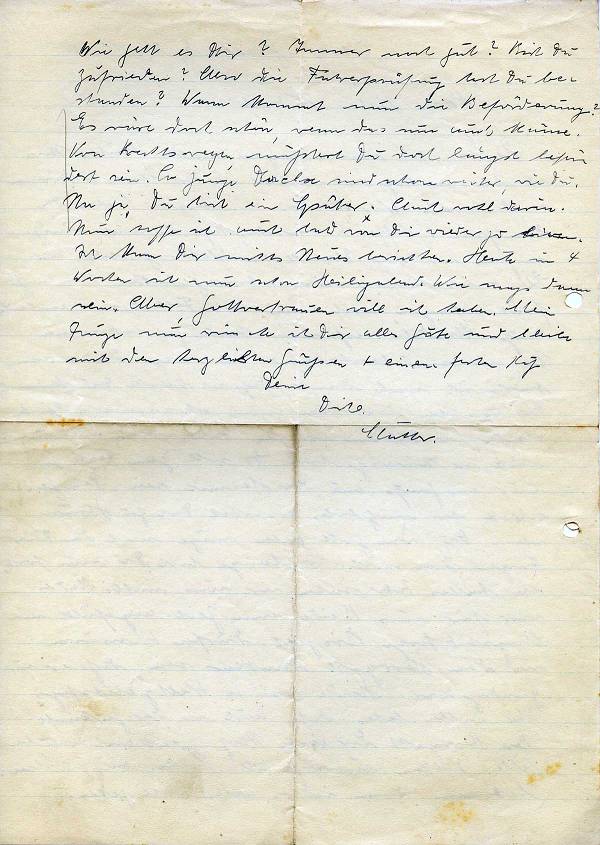 Wie geht es Dir? Immer noch gut? Bist Du
zufrieden? Also die Fahrerprüfung hast Du be-
standen? Wann kommt nun die Beförderung?
Es wäre doch schön, wenn das nun auch käme.
Von Rechtswegen müsstest Du doch längst beför
dert sein. So junge Dachse sind schon weiter, wie du.
Na ja, Du bist ein Später. Mut
Nun hoffe ich auch bald von Dir wieder zu hören.
Ich kann Dir nichts Neues berichten. Heute in 4
Wochen ist nun schon Heiligabend. Wie mags dann
sein. Aber, Gottvertrauen will ich haben. Mein
Junge nun wünsche ich Dir alles Gute und bleibe
mit den herzlichsten Grüßen + einen festen Kuß
Deine
Dich
Mutter.